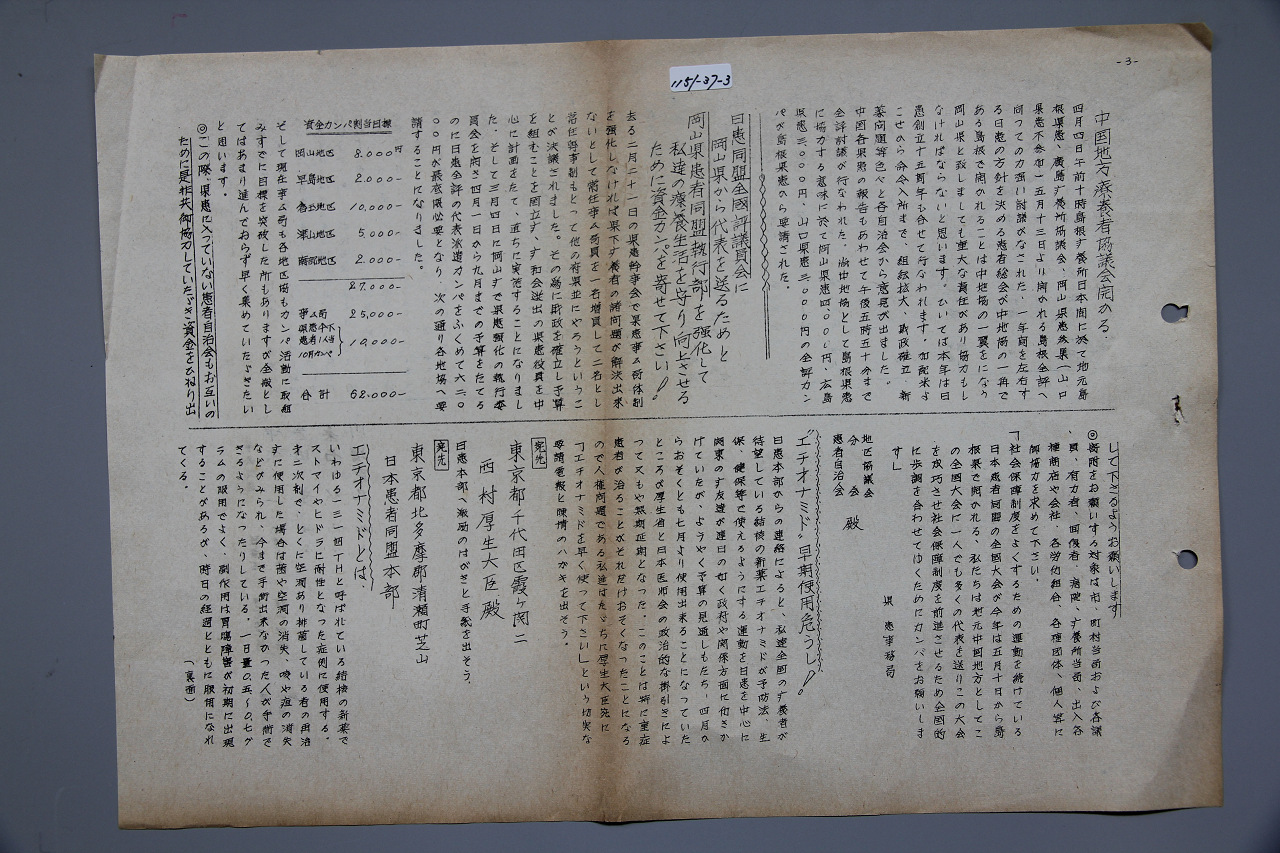 -3-
1151-37-3
中国地方療養者協議会開かる.
四月四日午前十時島根療養所日本間に於て地元島
根県患、廣島療養所協議会、岡山県患参集(山口
県患不参加)五月十三日より開かれる島根全評へ
向っての力強い討議がなされた.一年間を左右す
る日患の方針を決める患者総会が中地協の一角で
ある島根で開かれることは中地協の一翼をになう
岡山県と致しましても重大な責任があり協力もし
なければならないと思います.ひいては本年は日
患創立十五周年も合せて行なわれます.加配米よ
こせから分会入所まで、組織拡大、財政確立、新
薬問題等色々と各自治会から意見が出ました。
中国各県患の報告もあわせて午後五時五十分まで
全評討議が行なわれた.尚中地協として島根県患
に協力する意味に於て岡山県患四〇〇〇円、広島
県患三〇〇〇円、山口県患三〇〇〇円の全評カン
パが島根県患から要請された.
日患同盟全國評議員会に
岡山県から代表を送るためと
岡山県患者同盟執行部を強化して
私達の療養生活を守り向上させる
ために資金カンパを寄せて下さい!
去る二月二十一日の県患幹事会で県患事ム局体制
を強化しなければ県下療養者の諸問題が解決出来
ないとして常任事ム局員を一名増員して二名とし
常任幹事制もとって他の府県並にやろうというこ
とが決議されました.その為に財政を確立し予算
を組むことを目立ず、療和会選出の県患役員を中
心に計画をたて、直ちに実施することになりまし
た.そして三月四日に岡山療で県患強化の執行委
員会を開き四月一日から九月までの予算をたてる
のに日患全評の代表派遣カンパをふくめて六二〇
〇〇円が最底限必要となり、次の通り各地協へ要
請することになりました。
資金カンパ割当目標
岡山地区 8.000円
早島地区 2.000-
邑玉地区 10,000-
津山地区 5,000-
南部地区 2.000-
27.000-
事ム局 25,000-
県患中下
患者1人当
10円カンパ 10,000-
合計 62.000-
そして現在事ム局も各地区協もカンパ活動に取組
みすでに目標を突破した所もありますが全般とし
てはあまり進んでおらず早く集めていたゞきたい
と思います.
◎この際、県患に入っていない患者自治会もお互いの
ために是非共御協力していたゞき資金をひねり出
して下さるようお願いします
◎寄附をお願いする対象は市、町村当局および各議
員、有力者、回復者、病院、療養所当局、出入各
種商店や会社、各労仂組合、各種団体、個人等に
御協力を求めて下さい.
「社会保障制度をよくするための運動を続けている
日本患者同盟の全国大会が今年は五月十日から島
根県で開かれる、私たちは地元中国地方としてこ
の全国大会に一人でも多くの代表を送りこの大会
を成巧させ社会保障制度を前進させるため全国的
に歩調を合わせてゆくためにカンパをお願いしま
す」
県患事務局
地区協議会
分会
患者自治会 殿
"エチオナミド"早期使用危うし!
日患本部からの連絡によると、私達全国の療養者が
待望している結核の新薬エチオナミドが予防法、生
保、健保等で使えるようにする運動を日患を中心に
関東の療友達が連日の如く政府や関係方面に仂きか
けていたが、ようやく予算の見通しもたち、四月か
らおそくとも七月より使用出来ることになっていた
ところが厚生省と日本医師会の政治的な掛引きによ
って又もや無期延期となった.このことは特に重症
患者が治ることがそれだけおそくなったことになる
ので人権問題である私達はたゞちに厚生大臣宛に
「エチオナミドを早く使って下さい」という切実な
要請電報と陳情のハガキを出そう.
宛先
東京都千代田区霞ヶ関二
西村厚生大臣殿
日患本部へ激励のはがきと手紙を出そう.
宛先
東京都北多摩郡清瀬町芝山
日本患者同盟本部
エチオナミドとは
いわゆる一三一四THと呼ばれている結核の新薬で
ストマイやヒドラに耐性となった症例に使用する.
オ二次剤で、とくに空洞あり排菌している者の用治
療に使用した場合は菌や空洞の消失、咳や痰の消失
などがみられ、今まで手術出来なかった人が手術で
きるようになったりしている.一日量〇.五〜〇.七グ
ラムの服用でよく、副作用は胃腸障害が初期に出現
することがあるが、時日の経過とともに服用になれ
てくる.
(裏面)